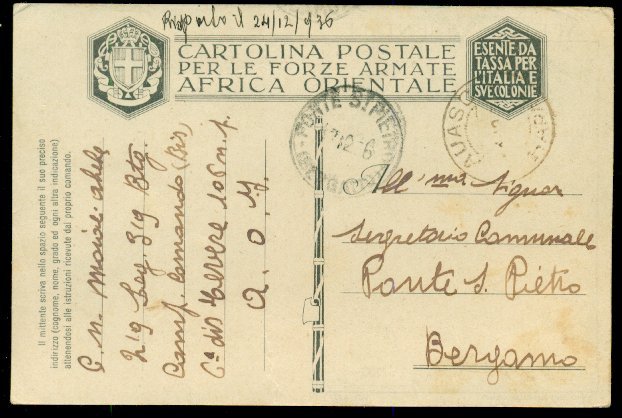 Risposto il 24/12/936
CARTOLINA POSTALE
PER LE FORZE ARMATE
AFRICA ORIENTALE
ESENTE DA
TASSA PER
L'ITALIA E
SVE COLONIE
PONTE S. PIETRO
Ill'mo Signor
Segretario Comunale
Ponte S. Pietro
Bergamo
Il mittente scriva nello spazio seguente il suo preciso
indirizzo (cognome, nome, grado ed ogni altra indicazione)
attenendosi alle istruzioni ricevute dal proprio comando.
C. N.
219 Leg. 319 Btg.
Comp. Comando
Tevere
A. O. I.